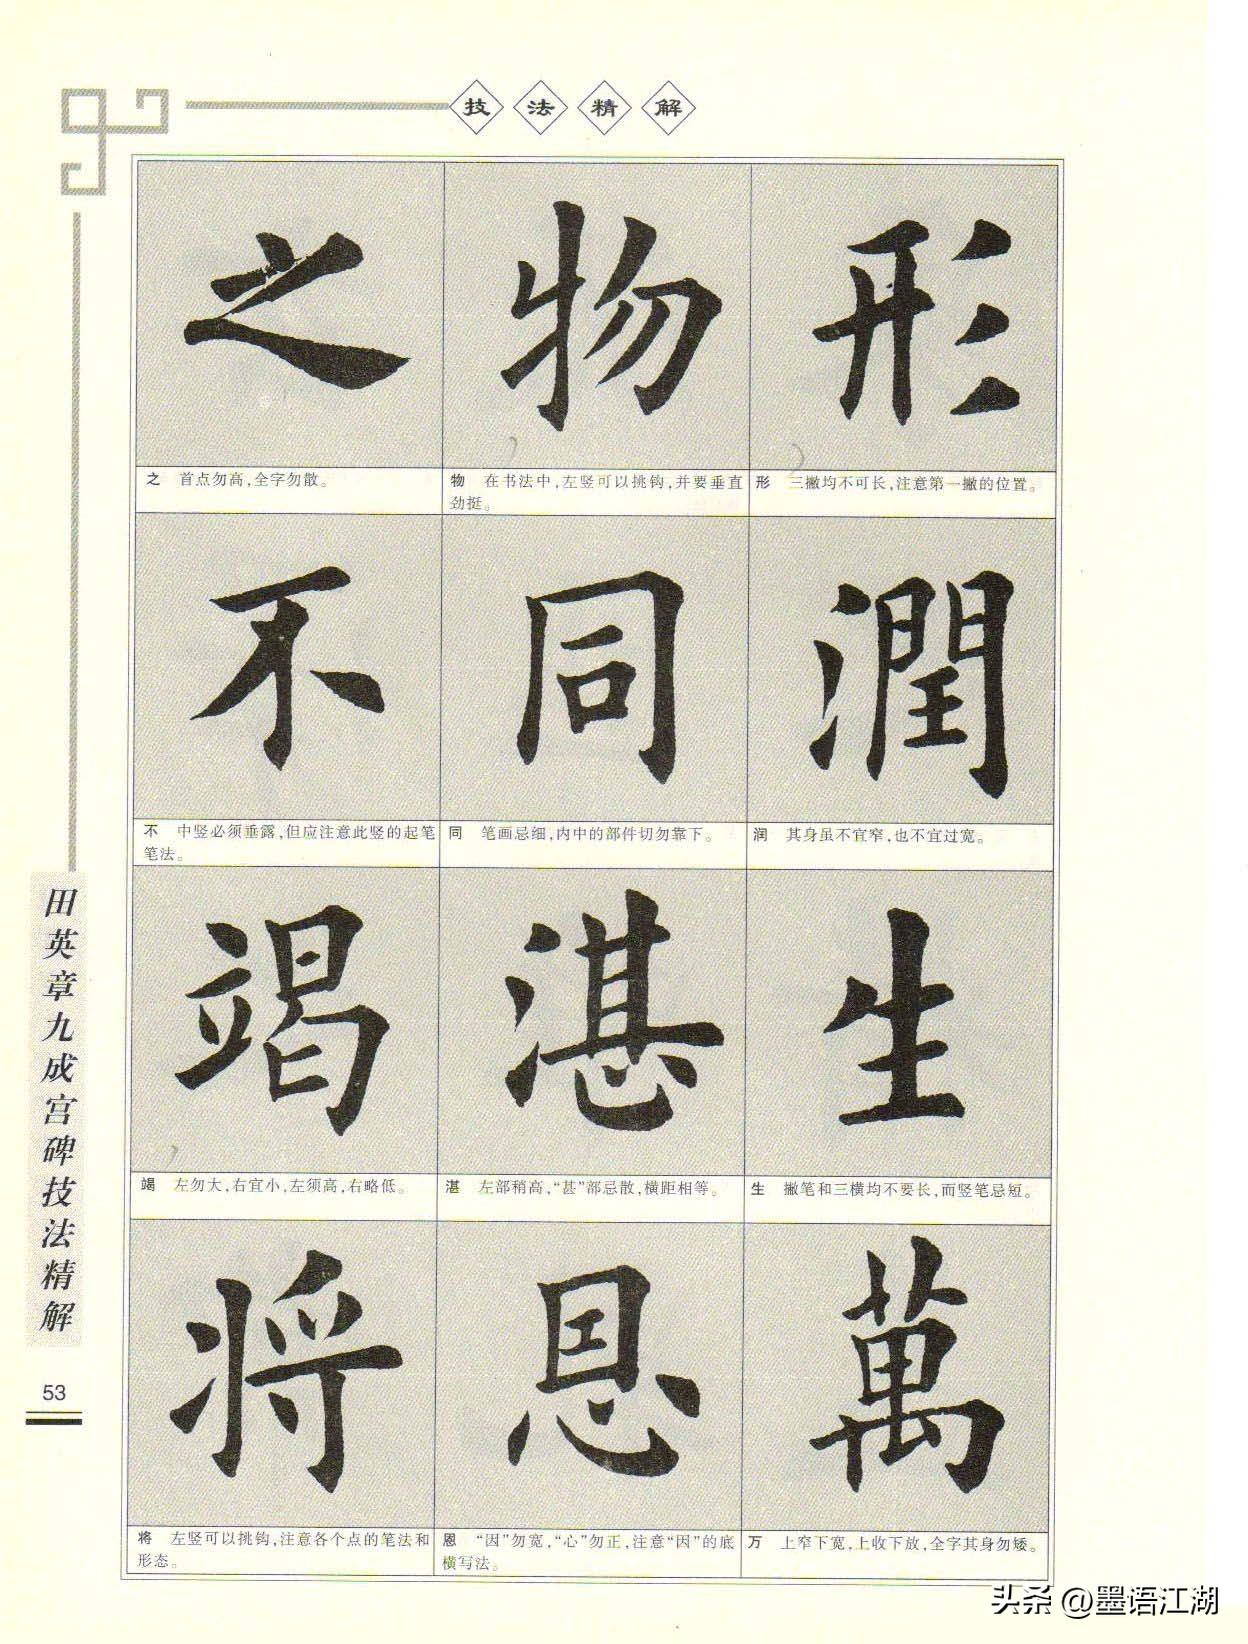 技法精解
之 物 形
之 首点勿高,全字勿散。
物 在书法中,左竖可以挑钩,并要垂直
劲挺。
形 三撇均不可长,注意第一撇的位置。
不 同 潤
不 中竖必须垂露,但应注意此竖的起笔
笔法。
同 笔画忌细,内中的部件切勿靠下。
润 其身虽不宜窄,也不宜过宽。
竭 湛 生
竭 左勿大,右宜小,左须高,右略低。
湛 左部稍高,“甚”部忌散,横距相等。
生 撇笔和三横均不要长,而竖笔忌短。
将 恩 萬
将 左竖可以挑钩,注意各个点的笔法和
形态。
恩 “因”勿宽,“心”勿正,注意“因”的底
横写法。
万 上窄下宽,上收下放,全字其身勿矮。
田英章九成宫碑技法精解
53
头条 @墨语江湖